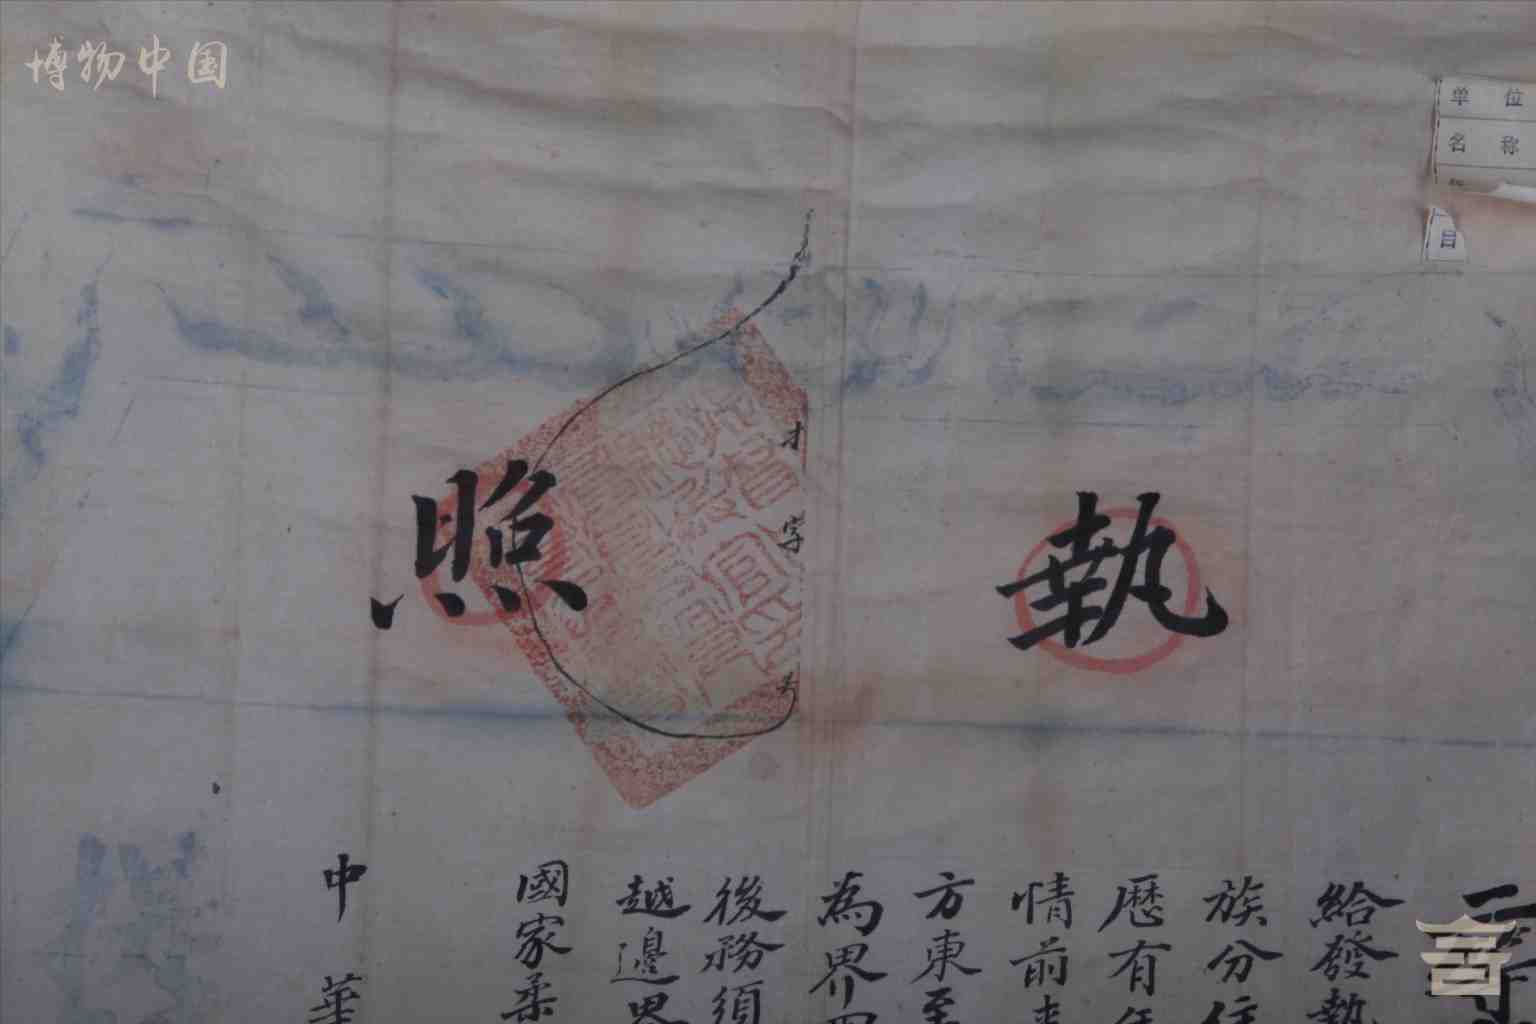 博物中国
单位
名称
目
執照
才字
号
給發執
族分住
歷有年
情前來
方東至
為界四
後務須
越邊界
國家柔
中華